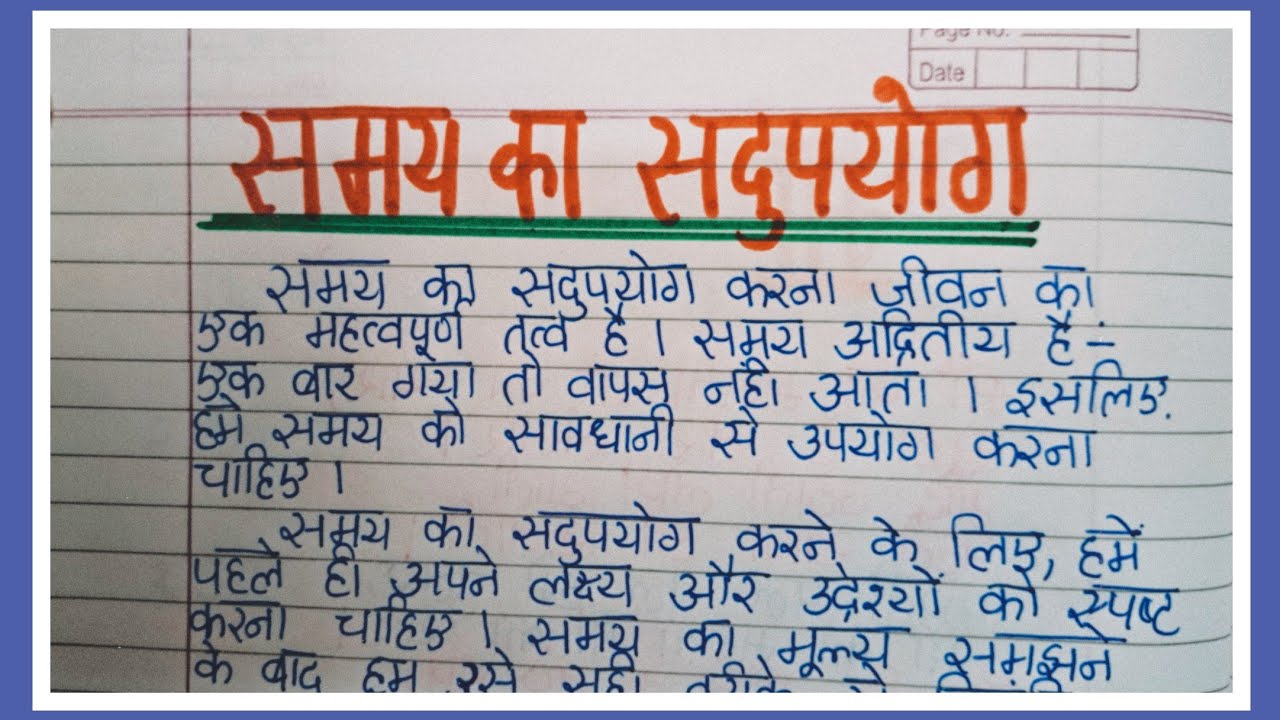 Page No.
Date
समय का सदुपयोग
समय का सदुपयोग करना जीवन का
एक महत्वपूर्ण तत्व है। समय अद्वितीय है -
एक बार गया तो वापस नही आता । इसलिए
हमे समय को सावधानी से उपयोग करना
चाहिए ।
समय का सदुपयोग करने के लिए, हमें
पहले ही अपने लक्ष्य और उद्देश्यों को स्पष्ट
करना चाहिए । समय का मूल्य समझने
के बाद हम इसे सही तरीके से